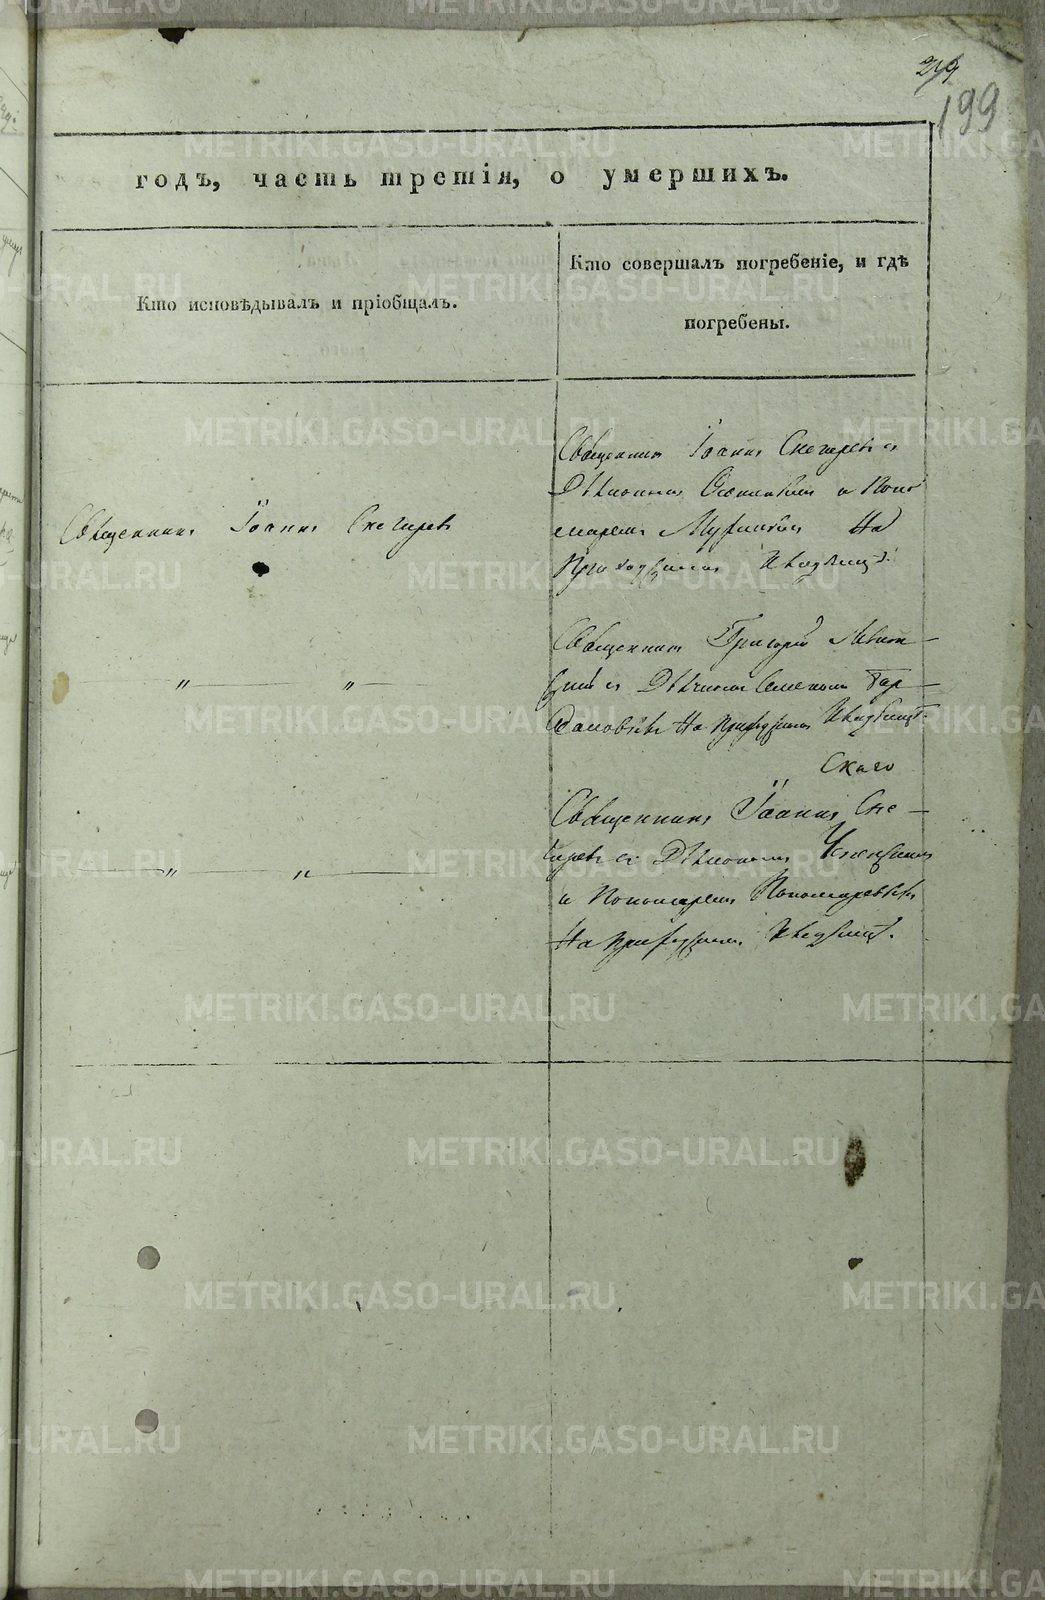 219
199
годъ, часть третія, о умершихъ.
Кто исповѣдывалъ и пріобщалъ.
Кто совершалъ погребеніе, и гдѣ
погребены.
Священникъ Іоаннъ Снегирев
Священникъ Іоаннъ Снегиревъ съ
Дьякономъ и Поно
маремъ На
Приходскомъ Кладбищѣ.
" "
Священникъ Григорій
съ Дьячкомъ Семеномъ Бар
На Приходском Кладбищѣ.
Скаго
" "
Священникъ Іоаннъ Сне
гирев съ Дьякономъ
и Пономаремъ Пономаревымъ
На приходском Кладбищѣ.
METRIKI.GASO-URAL.RU